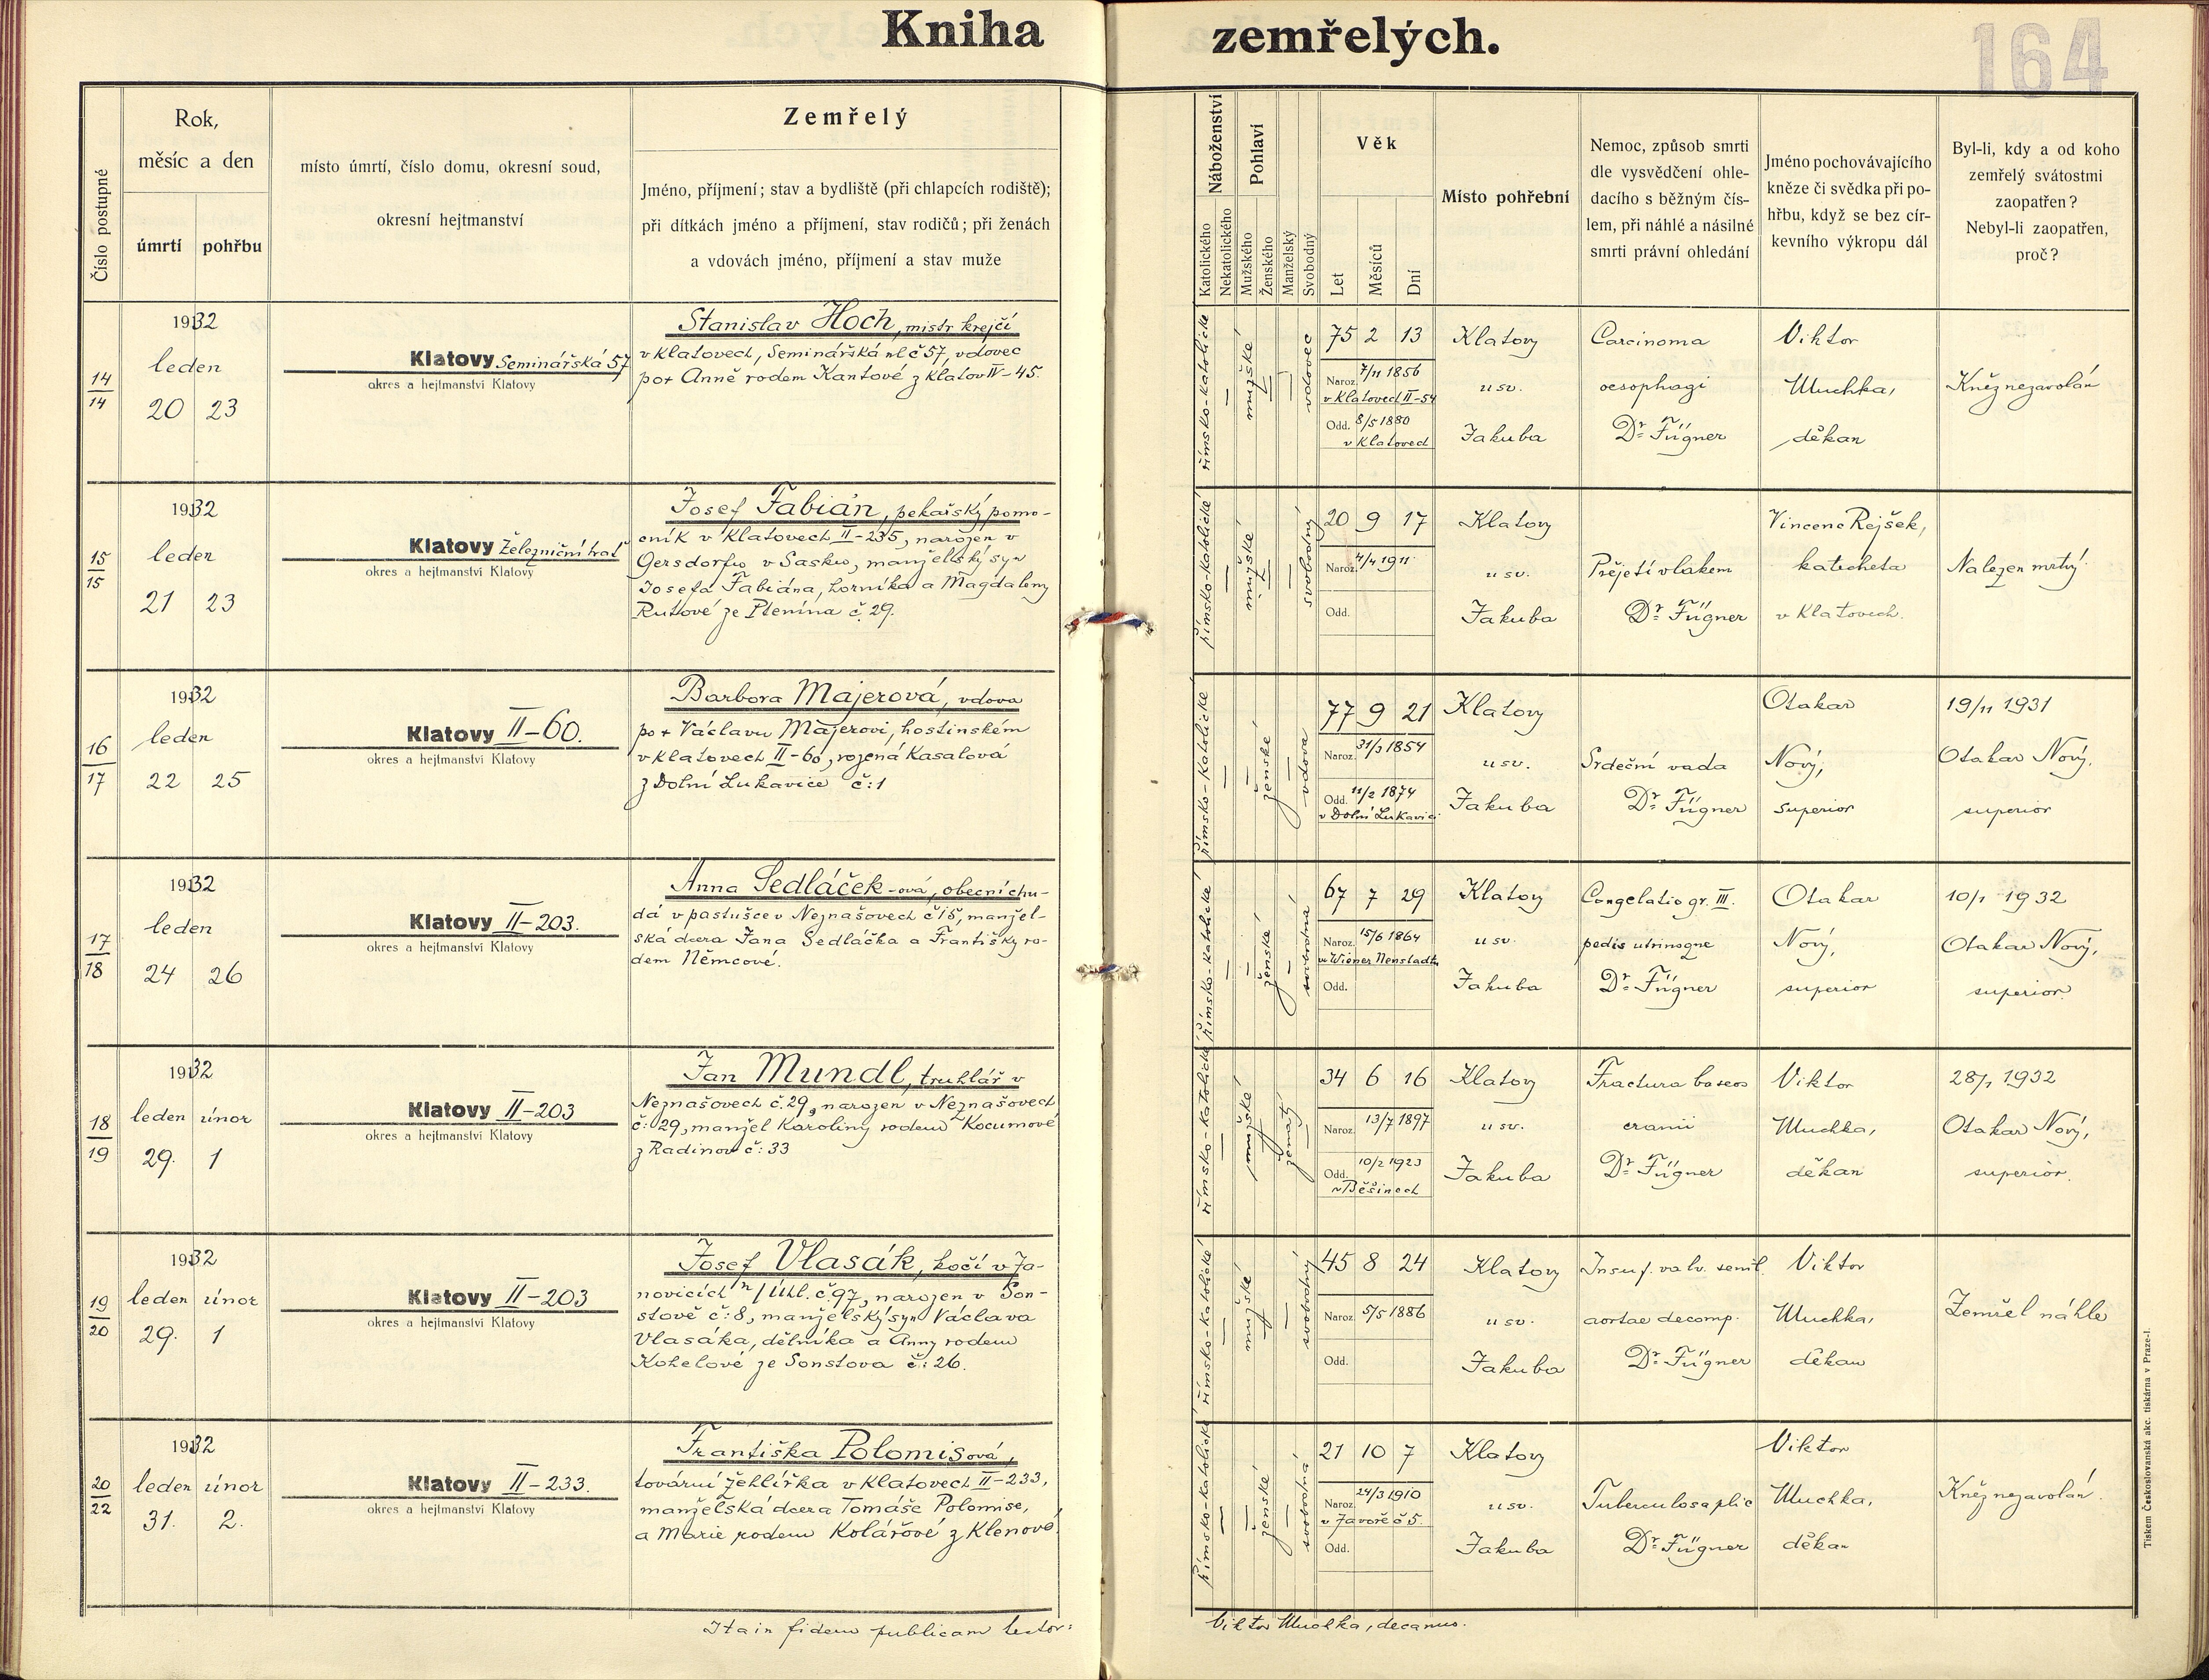 Kniha zemřelých.
164
Číslo postupné
Rok,
měsíc a den
úmrtí
pohřbu
místo úmrtí, číslo domu, okresní soud,
okresní hejtmanství
Zemřelý
Jméno, příjmení; stav a bydliště (při chlapcích rodiště);
při dítkách jméno a příjmení, stav rodičů; při ženách
a vdovách jméno, příjmení a stav muže
Náboženství
Katolického
Nekatolického
Pohlaví
Mužského
Ženského
Manželský
Svobodný
Věk
Let
Měsíců
Dní
Místo pohřební
Nemoc, způsob smrti
dle vysvědčení ohle-
dacího s běžným čís-
lem, při náhlé a násilné
smrti právní ohledání
Jméno pochovávajícího
kněze či svědka při po-
hřbu, když se bez cír-
kevního výkropu dál
Byl-li, kdy a od koho
zemřelý svátostmi
zaopatřen?
Nebyl-li zaopatřen,
proč?
14
14
1932
leden
20 23
Klatovy Seminářská 57
okres a hejtmanství Klatovy
Stanislav Hoch, mistr krejčí
v Klatovech, Seminářská ul č 57, vdovec
po + Anně rodem Kantové z Klatov II-45.
římsko-katolické
mužské
vdovec
75 2 13
Naroz. 7/11 1856
v Klatovech II-54
Odd. 8/5 1880
v Klatovech
Klatovy
u sv.
Jakuba
Carcinoma
oesophagi
Dr Fügner
Viktor
Muchka,
děkan
Kněz nezavolán
15
15
1932
leden
21 23
Klatovy Železniční trať
okres a hejtmanství Klatovy
Josef Fabián, pekařský pomo-
cník v Klatovech II-235, narozen v
Gersdorfu v Sasku, manželský syn
Josefa Fabiána, horníka a Magdaleny
Rutové ze Ptenína č. 29.
římsko-katolické
mužské
svobodný
20 9 17
Naroz. 4/4 1911
Odd.
Klatovy
u sv.
Jakuba
Přejetí vlakem
Dr Fügner
Vincenc Rejšek,
katecheta
v Klatovech.
Nalezen mrtvý
16
17
1932
leden
22 25
Klatovy II-60.
okres a hejtmanství Klatovy
Barbora Majerová, vdova
po + Václavu Majerovi, hostinském
v Klatovech II-60, rozená Kasalová
z Dolní Lukavice č: 1
římsko-katolické
ženské
vdova
77 9 21
Naroz. 31/3 1854
Odd. 11/2 1874
v Dolní Lukavici
Klatovy
u sv.
Jakuba
Srdeční vada
Dr Fügner
Otakar
Nový,
superior
19/11 1931
Otakar Nový,
superior
17
18
1932
leden
24 26
Klatovy II-203.
okres a hejtmanství Klatovy
Anna Sedláček-ová, obecní chu-
dá v pastušce v Neznašovech č 15, manžel-
ská dcera Jana Sedláčka a Františky ro-
dem Němcové.
římsko-katolické
ženské
svobodná
67 7 29
Naroz. 15/6 1864
ve Wiener Neustadtu
Odd.
Klatovy
u sv.
Jakuba
Congelatio gr. III.
pedis utrinsqne
Dr Fügner
Otakar
Nový,
superior
10/1 1932
Otakar Nový,
superior.
18
19
1932
leden únor
29. 1
Klatovy II-203
okres a hejtmanství Klatovy
Jan Mundl, truhlář v
Neznašovech č. 29, narozen v Neznašovech
č: 29, manžel Karoliny rodem Kocumové
z Radinov č: 33
římsko-katolické
mužské
ženatý
34 6 16
Naroz. 13/7 1897
Odd. 10/2 1923
v Běšinech
Klatovy
u sv.
Jakuba
Fractura baseos
cranii
Dr Fügner
Viktor
Muchka,
děkan
28/1 1932
Otakar Nový,
superior.
19
20
1932
leden únor
29. 1
Klatovy II-203
okres a hejtmanství Klatovy
Josef Vlasák, kočí v Ja-
novicích n/Úhl. č 97, narozen v Son-
stově č: 8, manželský syn Václava
Vlasáka, dělníka a Anny rodem
Kohelové ze Sonstova č: 26.
římsko-katolické
mužské
svobodný
45 8 24
Naroz. 5/5 1886
Odd.
Klatovy
u sv.
Jakuba
Insuf. valv. semil.
aortae decomp.
Dr Fügner
Viktor
Muchka,
děkan
Zemřel náhle
20
22
1932
leden únor
31. 2.
Klatovy II-233.
okres a hejtmanství Klatovy
Františka Polomisová,
tovární žehlířka v Klatovech II-233,
manželská dcera Tomáše Polomise,
a Marie rodem Kolářové z Klenové.
římsko-katolické
ženské
svobodná
21 10 7
Naroz. 24/3 1910
v Javoře č 5.
Odd.
Klatovy
u sv.
Jakuba
Tuberculosa plic
Dr Fügner
Viktor
Muchka,
děkan
Kněz nezavolán.
Ita in fidem publicam testor:
Viktor Muchka, decanus.
Tiskem Československá akc. tiskárna v Praze-I.